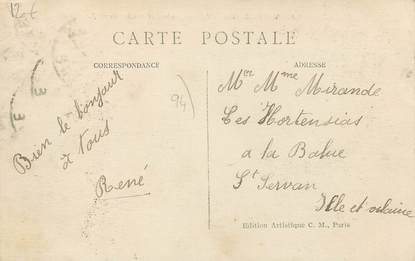 12€
CARTE POSTALE
CORRESPONDANCE
ADRESSE
Bien le bonjour
à tous
René
94
Mr Mme Mirande
Les Hortensias
a la Balue
St Servan
Ille et vilaine
Edition Artistique C. M., Paris